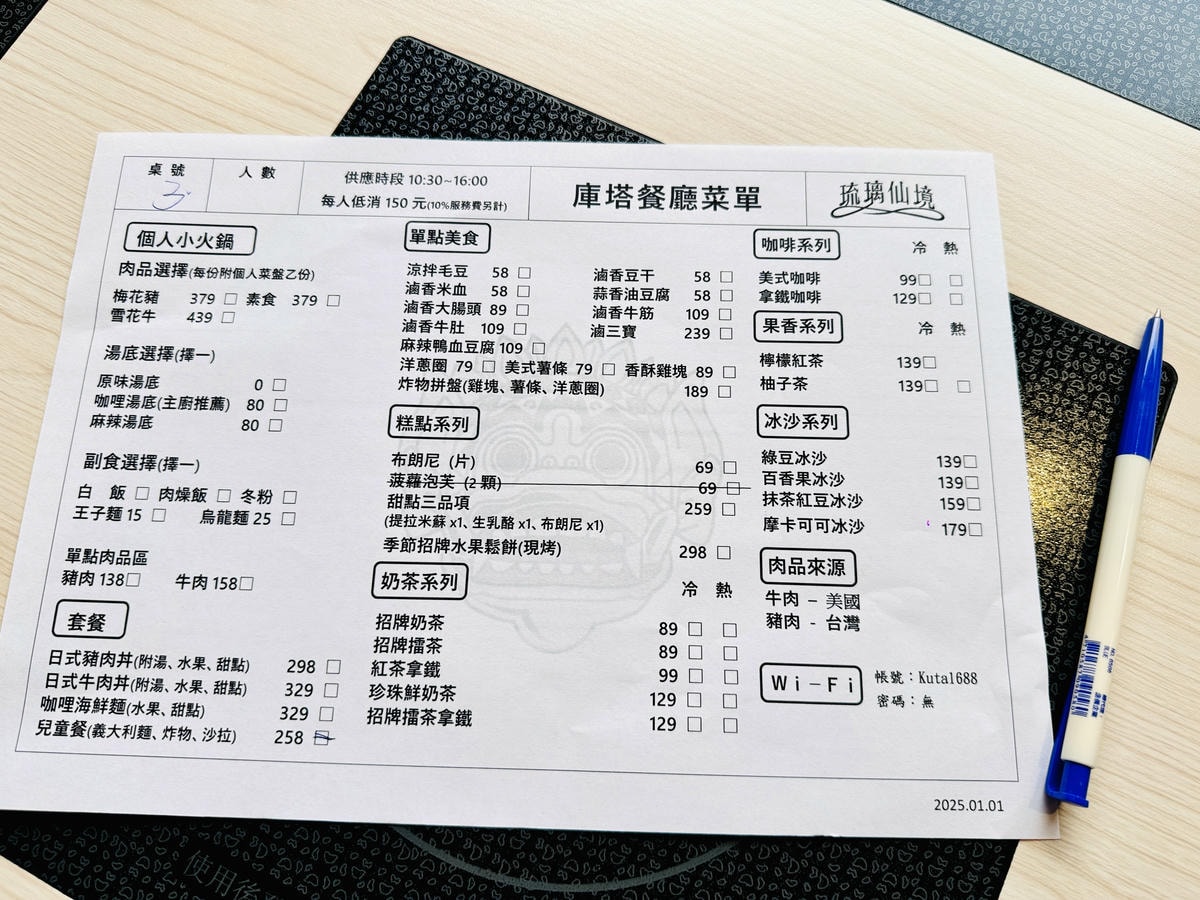 桌號 人數 供應時段 10:30~16:00
3 每人低消 150 元(10%服務費另計)
庫塔餐廳菜單
琉璃仙境
個人小火鍋
肉品選擇(每份附個人菜盤乙份)
梅花豬 379 □ 素食 379 □
雪花牛 439 □
湯底選擇(擇一)
原味湯底 0 □
咖哩湯底(主廚推薦) 80 □
麻辣湯底 80 □
副食選擇(擇一)
白 飯 □ 肉燥飯 □ 冬粉 □
王子麵 15 □ 烏龍麵 25 □
單點肉品區
豬肉 138□ 牛肉 158□
套餐
日式豬肉丼(附湯、水果、甜點) 298 □
日式牛肉丼(附湯、水果、甜點) 329 □
咖哩海鮮麵(水果、甜點) 329 □
兒童餐(義大利麵、炸物、沙拉) 258 □
單點美食
涼拌毛豆 58 □ 滷香豆干 58 □
滷香米血 58 □ 蒜香油豆腐 58 □
滷香大腸頭 89 □ 滷香牛筋 109 □
滷香牛肚 109 □ 滷三寶 239 □
麻辣鴨血豆腐 109 □
洋蔥圈 79 □ 美式薯條 79 □ 香酥雞塊 89 □
炸物拼盤(雞塊、薯條、洋蔥圈) 189 □
糕點系列
布朗尼 (片) 69 □
菠蘿泡芙 (2 顆) 69 □
甜點三品項 259 □
(提拉米蘇 x1、生乳酪 x1、布朗尼 x1)
季節招牌水果鬆餅(現烤) 298 □
奶茶系列 冷 熱
招牌奶茶 89 □ □
招牌擂茶 89 □ □
紅茶拿鐵 99 □ □
珍珠鮮奶茶 129 □ □
招牌擂茶拿鐵 129 □ □
咖啡系列 冷 熱
美式咖啡 99□ □
拿鐵咖啡 129□ □
果香系列 冷 熱
檸檬紅茶 139□
柚子茶 139□ □
冰沙系列
綠豆冰沙 139□
百香果冰沙 139□
抹茶紅豆冰沙 159□
摩卡可可冰沙 179□
肉品來源
牛肉 – 美國
豬肉 - 台灣
Wi-Fi
帳號：Kuta1688
密碼：無
2025.01.01
使用後